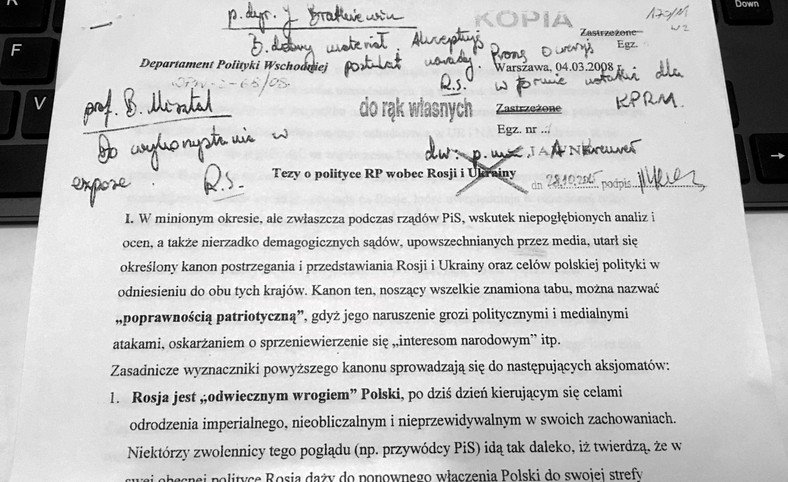 R
Down
F
V
p. dyr. J. Bratkiewicz
KOPIA
Zastrzeżone
Egz.
B. dobry materiał. Akceptuję
Departament Polityki Wschodniej
postulat narady. Proszę o wersję
Warszawa, 04.03.2008 r.
R.S.
w formie notatki dla
KPRM.
prof. B. Misztal
do rąk własnych
Zastrzeżone
Egz. nr
Do wykorzystania w
expose.
R.S.
dw: p. min.
Tezy o polityce RP wobec Rosji i Ukrainy
dn 28.10.2015 podpis
I. W minionym okresie, ale zwłaszcza podczas rządów PiS, wskutek niepogłębionych analiz i
ocen, a także nierzadko demagogicznych sądów, upowszechnianych przez media, utarł się
określony kanon postrzegania i przedstawiania Rosji i Ukrainy oraz celów polskiej polityki w
odniesieniu do obu tych krajów. Kanon ten, noszący wszelkie znamiona tabu, można nazwać
„poprawnością patriotyczną”, gdyż jego naruszenie grozi politycznymi i medialnymi
atakami, oskarżaniem o sprzeniewierzenie się „interesom narodowym” itp.
Zasadnicze wyznaczniki powyższego kanonu sprowadzają się do następujących aksjomatów:
1. Rosja jest „odwiecznym wrogiem” Polski, po dziś dzień kierującym się celami
odrodzenia imperialnego, nieobliczalnym i nieprzewidywalnym w swoich zachowaniach.
Niektórzy zwolennicy tego poglądu (np. przywódcy PiS) idą tak daleko, iż twierdzą, że w
swej obecnej polityce Rosja dąży do ponownego włączenia Polski do swojej strefy